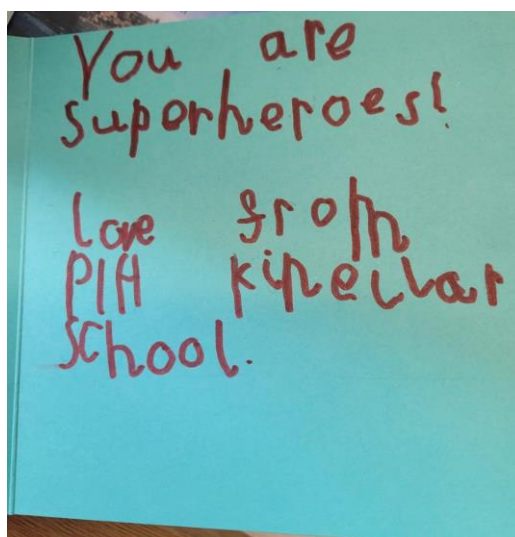 You are
superheroes!
love from
P1H kinellar
school.